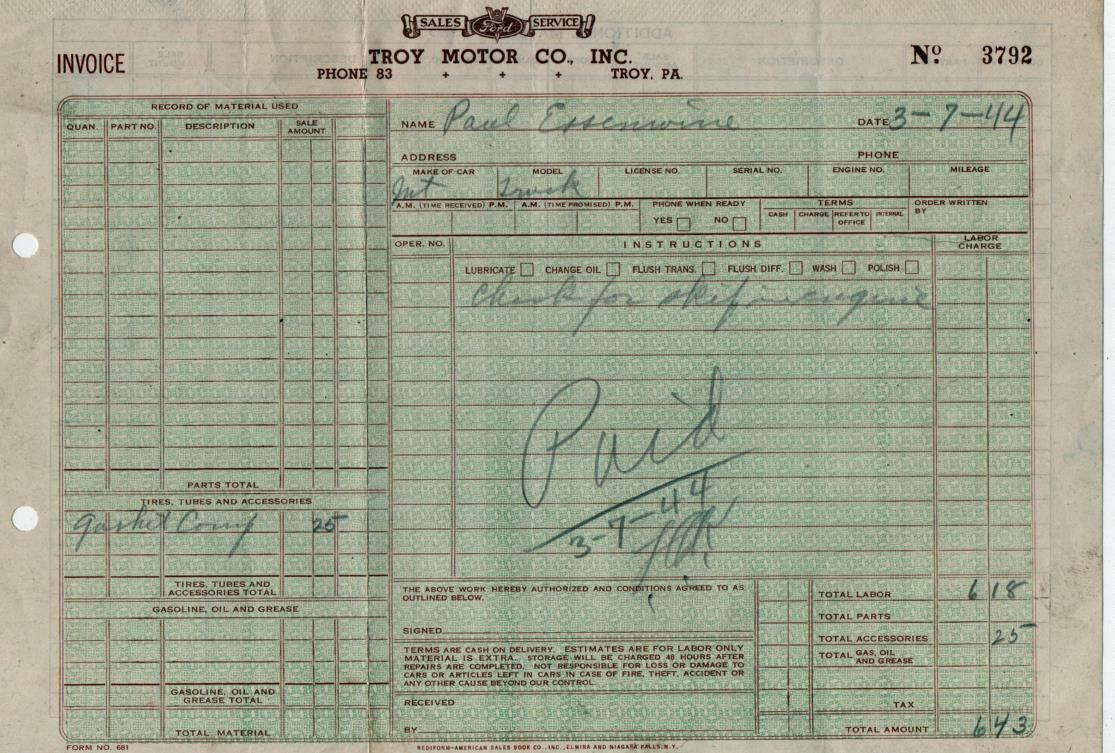 SALES Ford SERVICE
INVOICE
TROY MOTOR CO., INC.
No 3792
PHONE 83 + + + TROY, PA.
RECORD OF MATERIAL USED
QUAN. PART NO. DESCRIPTION SALE AMOUNT
NAME Paul Essenwine DATE 3-7-44
ADDRESS PHONE
MAKE OF CAR MODEL LICENSE NO. SERIAL NO. ENGINE NO. MILEAGE
Int Truck
A.M. (TIME RECEIVED) P.M. A.M. (TIME PROMISED) P.M. PHONE WHEN READY TERMS ORDER WRITTEN BY
YES NO CASH CHARGE REFER TO OFFICE INTERNAL
OPER. NO. INSTRUCTIONS LABOR CHARGE
LUBRICATE CHANGE OIL FLUSH TRANS. FLUSH DIFF. WASH POLISH
Check for skip in engine
Paid
3-7-44
PARTS TOTAL
TIRES, TUBES AND ACCESSORIES
Gasket Comp 25
TIRES, TUBES AND ACCESSORIES TOTAL
GASOLINE, OIL AND GREASE
GASOLINE, OIL AND GREASE TOTAL
TOTAL MATERIAL
THE ABOVE WORK HEREBY AUTHORIZED AND CONDITIONS AGREED TO AS
OUTLINED BELOW.
SIGNED
TERMS ARE CASH ON DELIVERY. ESTIMATES ARE FOR LABOR ONLY
MATERIAL IS EXTRA. STORAGE WILL BE CHARGED 48 HOURS AFTER
REPAIRS ARE COMPLETED. NOT RESPONSIBLE FOR LOSS OR DAMAGE TO
CARS OR ARTICLES LEFT IN CARS IN CASE OF FIRE, THEFT, ACCIDENT OR
ANY OTHER CAUSE BEYOND OUR CONTROL.
RECEIVED
BY
TOTAL LABOR 6 18
TOTAL PARTS
TOTAL ACCESSORIES 25
TOTAL GAS, OIL AND GREASE
TAX
TOTAL AMOUNT 6 43
FORM NO. 681
REDIFORM-AMERICAN SALES BOOK CO., INC., ELMIRA AND NIAGARA FALLS, N.Y.